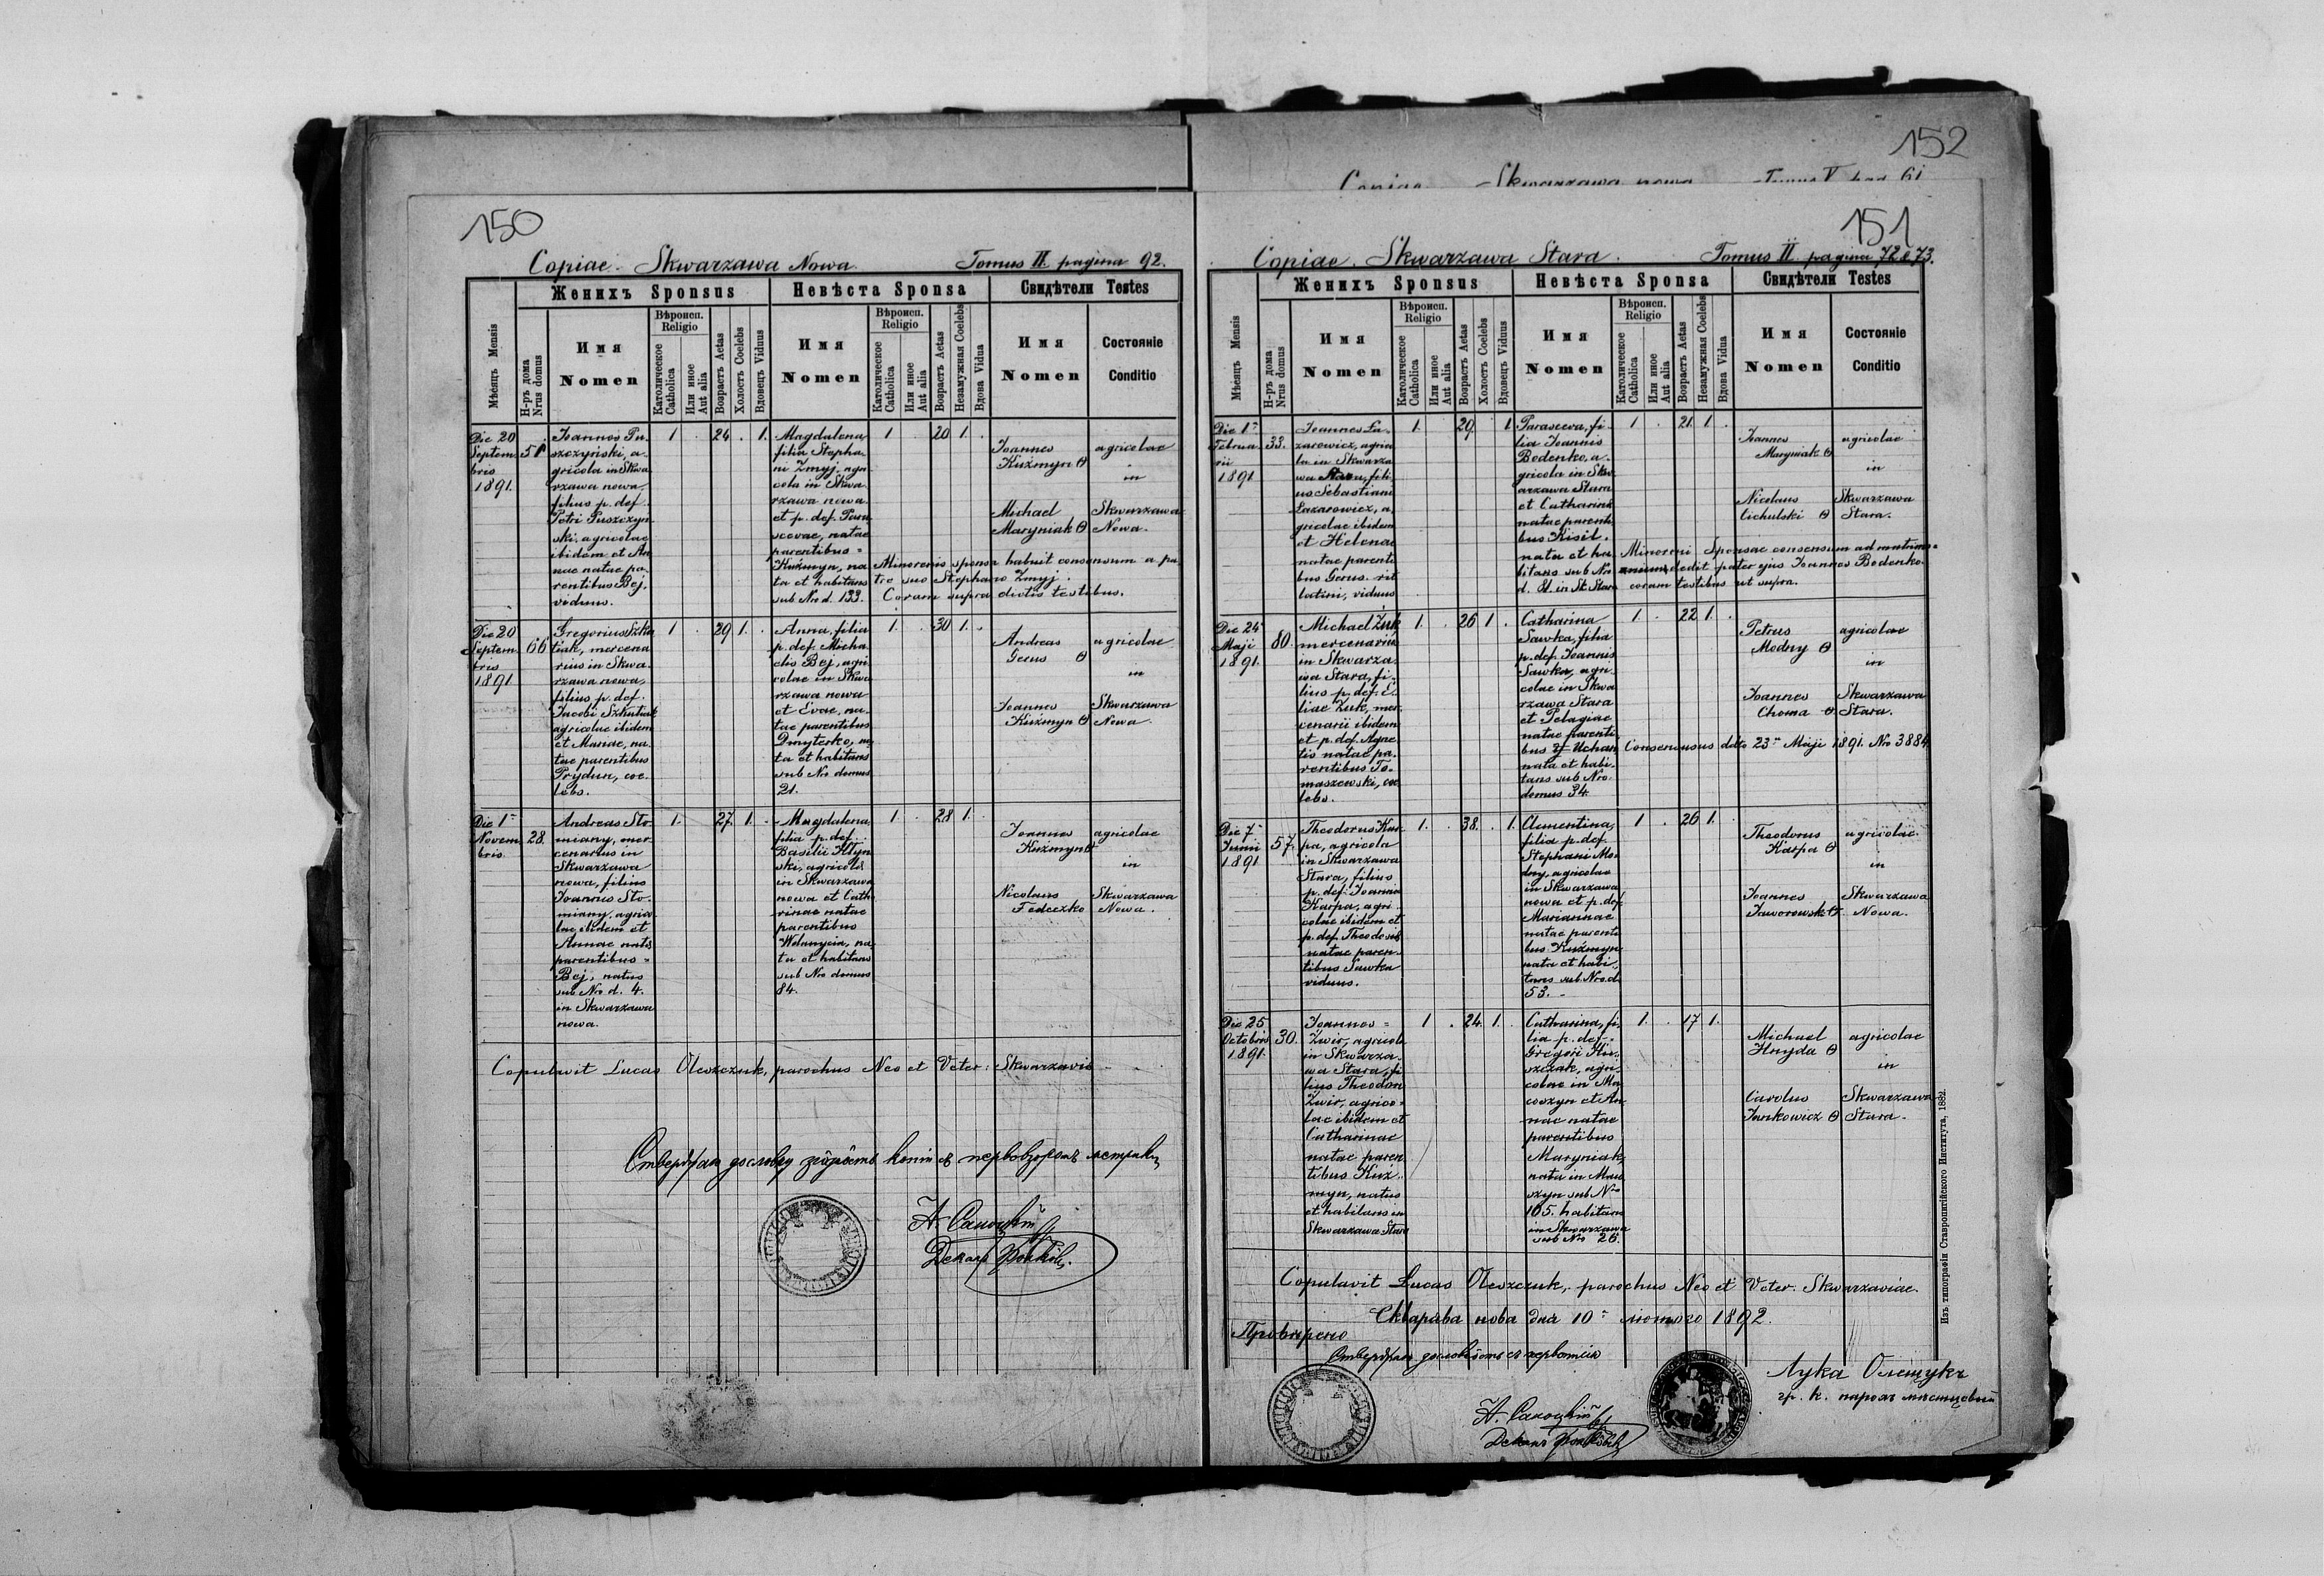 152
Copiae Skwarzawa nowa Tomus V pag 61
150
Copiae. Skwarzawa Nowa. Tomus II. pagina 92.
Мѣсяцъ Mensis
Н-ръ дома Nrus domus
Женихъ Sponsus
Невѣста Sponsa
Свидѣтели Testes
Имя Nomen
Вѣроисп. Religio
Католическое Catholica
Или иное Aut alia
Возрастъ Aetas
Холостъ Coelebs
Вдовецъ Viduus
Имя Nomen
Вѣроисп. Religio
Католическое Catholica
Или иное Aut alia
Возрастъ Aetas
Незамужная Coelebs
Вдова Vidua
Имя Nomen
Состоянiе Conditio
Die 20
Septem
bris
1891.
51
Joannes Pu-
szczyński, a-
gricola in Skwa
rzawa nowa,
filius p. def.
Petri Puszczyn
ski, agricolae
ibidem et An
nae natae pa-
rentibus Bej,
viduus.
1 . 24 . 1.
Magdalena,
filia Stepha-
ni Zmyj, agri
cola in Skwa
rzawa nowa
et p. def. Para
scevae, natae
parentibus =
Kuźmyn, na
ta et habitans
sub Nro d. 133.
1 . 20 1 .
Minorenis sponsa habuit consensum a pa
tre suo Stephano Zmyj.
Coram supra dictis testibus.
Joannes
Kuźmyn
Michael
Maryniak
agricolae
in
Skwarzawa
Nowa.
Die 20
Septem
bris
1891
66
Gregorius Szku
tiak, mercena
rius in Skwa
rzawa nowa,
filius p. def.
Jacobi Szkutiak
agricolae ibidem
et Mariae, na
tae parentibus
Prydun, coe
lebs.
1 . 29 1. .
Anna, filia
p. def. Micha
elis Bej, agri
colae in Skwa
rzawa nowa
et Evae, na-
tae parentibus
Dmyterko, na
ta et habitans
sub Nro domus
21.
1. . 30 1. .
Andreas
Gerus
Joannes
Kuźmyn
agricolae
in
Skwarzawa
Nowa.
Die 1ª
Novem
bris
28.
Andreas Sto-
miany, mer-
cenarius in
Skwarzawa
nowa, filius
Joannis Sto-
miany, agrico
lae ibidem et
Annae natae
parentibus =
Bej, natus
sub Nro d. 4.
in Skwarzawa
nowa.
1. . 27. 1. .
Magdalena,
filia p. def.
Basilii Hłyn
ski, agricolae
in Skwarzawa
nowa et Cath
rinae natae
parentibus
na-
ta et habitans
sub Nro domus
84.
1 . 28 1. .
Joannes
Kuźmyn
Nicolaus
Fedeczko
agricolae
in
Skwarzawa
Nowa.
Copulavit Lucas Oleszczuk, parochus Neo et Veter: Skwarzavia
151
Copiae. Skwarzawa Stara. Tomus II. pagina 72 & 73.
Мѣсяцъ Mensis
Н-ръ дома Nrus domus
Женихъ Sponsus
Невѣста Sponsa
Свидѣтели Testes
Имя Nomen
Вѣроисп. Religio
Католическое Catholica
Или иное Aut alia
Возрастъ Aetas
Холостъ Coelebs
Вдовецъ Viduus
Имя Nomen
Вѣроисп. Religio
Католическое Catholica
Или иное Aut alia
Возрастъ Aetas
Незамужная Coelebs
Вдова Vidua
Имя Nomen
Состоянiе Conditio
Die 1ª
Februa
rii
1891
33.
Joannes La-
zarowicz, agrico
la in Skwarza
wa Stara, fili
us Sebastiani
Lazarowicz, a
gricolae ibidem
et Helenae
natae parenti
bus Gerus. rit
latini, viduus
1. . 29. . 1
Parasceva, fi-
lia Joannis
Bodenko, a-
gricola in Skw
arzawa Stara
et Catharinae
natae parenti
bus Kisil.
nata et ha-
bitans sub Nro
d. 81. in St. Stara
1 . 21. 1 .
Minoreni Sponsae consensum ad matrimo=
dedit pater ejus Joannes Bodenko
coram testibus ut supra.
Joannes
Maryniak
Nicolaus
Cichulski
agricolae
in
Skwarzawa
Stara.
Die 24
Maji
1891.
80.
Michael Żuk
mercenarius
in Skwarza-
wa Stara, fi-
lius p. def. E-
liae Żuk, mer-
cenarii ibidem
et p. def. Agne
tis natae pa-
rentibus To-
maszewski, coe
lebs.
1. . 26 1 .
Catharina
Sawka, filia
p. def. Joannis
Sawka, agri-
colae in Skwa
rzawa Stara
et Pelagiae
natae parenti
bus Uchan
nata et habi-
tans sub Nro
domus 34.
1. . 22 1. .
Consensus ddto 23ª Maji 1891. Nro 3884
Petrus
Modny
Joannes
Choma
agricolae
in
Skwarzawa
Stara.
Die 7ª
Junii
1891
57.
Theodorus Kar-
pa, agricola
in Skwarzawa
Stara, filius
p. def. Joannis
Karpa, agri-
colae ibidem et
p. def. Theodosiae
natae paren-
tibus Sawka
viduus.
1. . 38. . 1.
Clementina,
filia p. def.
Stephani Mo-
dny, agricolae
in Skwarzawa
nowa et p. def.
Mariannae
natae parenti
bus Kuźmyn
nata et habi-
tans sub Nro d.
53. -
1 . 26 1. .
Theodorus
Karpa
Joannes
Jaworowski
agricolae
in
Skwarzawa
Nowa.
Die 25
Octobris
1891.
30.
Joannes =
Żwir, agricola
in Skwarza-
wa Stara, fi
lius Theodori
Żwir, agrico-
lae ibidem et
Catharinae
natae paren
tibus Kuź-
myn, natus
et habitans in
Skwarzawa Stara
1 . 24. 1. .
Catharina, fi-
lia p. def. -
Gregorii
agri-
colae in Ma
coszyn et An
nae natae
parentibus
Maryniak,
nata in Maco
szyn sub Nro
105. habitans
in Skwarzawa
sub Nro 26.
1. . 17 1. .
Michael
Hnyda
Carolus
Jankowicz
agricolae
in
Skwarzawa
Stara.
Copulavit Lucas Oleszczuk, parochus Neo et Veter. Skwarzaviae.
Сквaрява нова дня 10ª лютого 1892.
Провѣрено
Лука Олещукъ
гр. к. парохъ мѣстцевый
Изъ типографіи Ставропигійского Института, 1882.